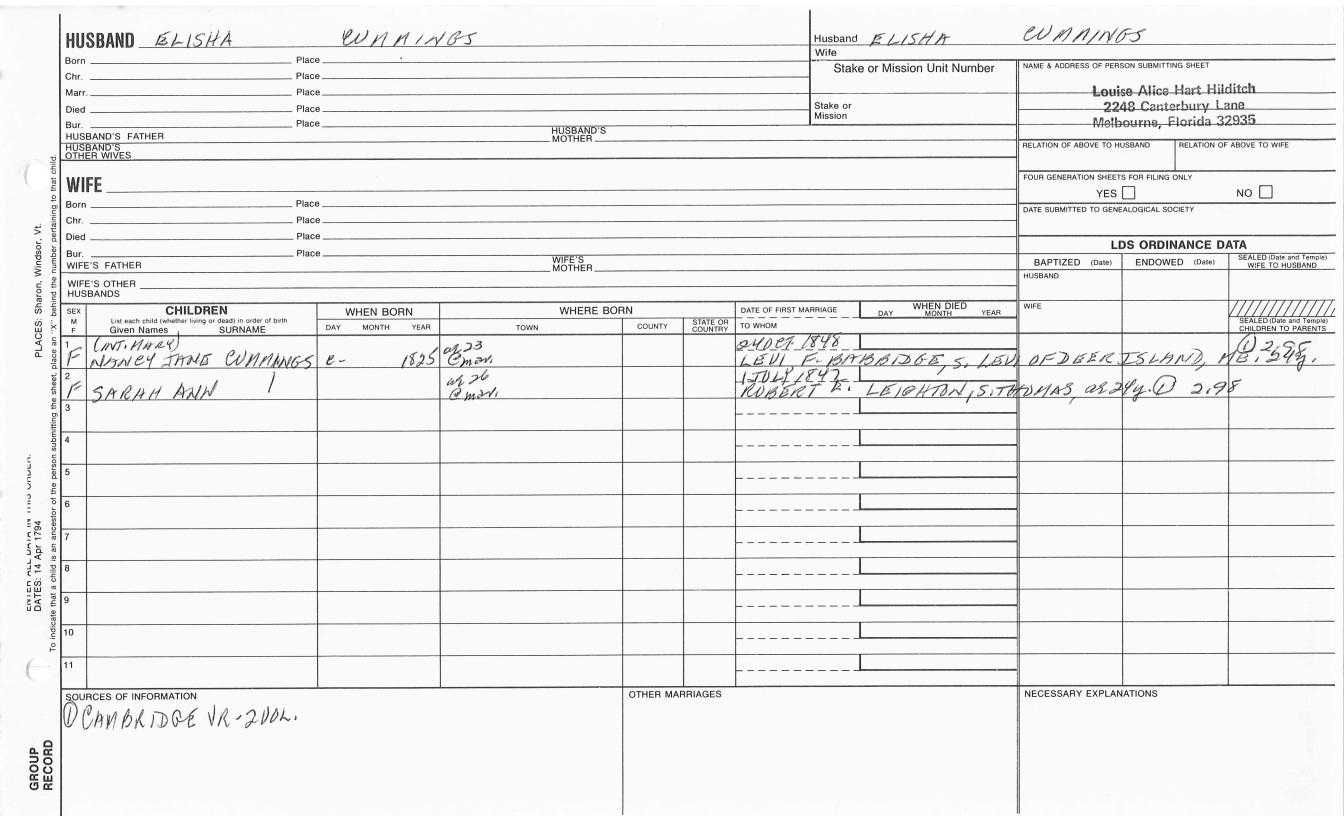 HUSBAND ELISHA CUMMINGS
Born Place
Chr. Place
Marr. Place
Died Place
Bur. Place
HUSBAND'S FATHER HUSBAND'S MOTHER
HUSBAND'S OTHER WIVES
Husband ELISHA CUMMINGS
Wife
Stake or Mission Unit Number
Stake or Mission
NAME & ADDRESS OF PERSON SUBMITTING SHEET
Louise Alice Hart Hilditch
2248 Canterbury Lane
Melbourne, Florida 32935
RELATION OF ABOVE TO HUSBAND RELATION OF ABOVE TO WIFE
FOUR GENERATION SHEETS FOR FILING ONLY
YES NO
DATE SUBMITTED TO GENEALOGICAL SOCIETY
WIFE
Born Place
Chr. Place
Died Place
Bur. Place
WIFE'S FATHER WIFE'S MOTHER
WIFE'S OTHER HUSBANDS
LDS ORDINANCE DATA
BAPTIZED (Date) ENDOWED (Date) SEALED (Date and Temple) WIFE TO HUSBAND
HUSBAND
WIFE
SEALED (Date and Temple) CHILDREN TO PARENTS
SEX M F
CHILDREN
List each child (whether living or dead) in order of birth
Given Names SURNAME
WHEN BORN
DAY MONTH YEAR
WHERE BORN
TOWN COUNTY STATE OR COUNTRY
DATE OF FIRST MARRIAGE
TO WHOM
WHEN DIED
DAY MONTH YEAR
1 (INT. MARY) ae 23 24 OCT 1848 ① 2.98
F NANCY JANE CUMMINGS c- 1825 @mar. LEVI F. BABBIDGE, S. LEVI OF DEER ISLAND, ME. 24y.
2 ae 26 1 JULY 1847
F SARAH ANN @mar. ROBERT E. LEIGHTON, S. THOMAS, ae 24y. ① 2.98
3
4
5
6
7
8
9
10
11
SOURCES OF INFORMATION
① CAMBRIDGE VR-2 VOL.
OTHER MARRIAGES
NECESSARY EXPLANATIONS
PLACES: Sharon, Windsor, Vt.
ENTER ALL DATA IN THIS ORDER:
DATES: 14 Apr 1794
To indicate that a child is an ancestor of the person submitting the sheet, place an "X" behind the number pertaining to that child.
GROUP RECORD